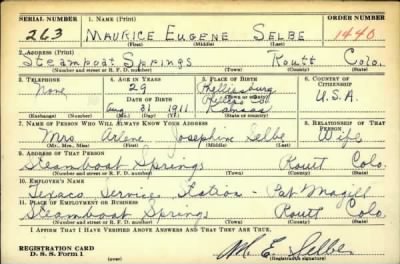 SERIAL NUMBER 1. NAME (Print) ORDER NUMBER
263 MAURICE EUGENE SELBE 1440
(First) (Middle) (Last)
2. ADDRESS (Print)
Steamboat Springs Routt Colo.
(Number and street or R. F. D. number) (Town) (County) (State)
3. TELEPHONE 4. AGE IN YEARS 5. PLACE OF BIRTH 6. COUNTRY OF CITIZENSHIP
None 29 Phillipsburg
DATE OF BIRTH Phillips Co.
Aug 31 1911 Kansas U.S.A.
(Exchange) (Number) (Mo.) (Day) (Yr.) (State or country)
7. NAME OF PERSON WHO WILL ALWAYS KNOW YOUR ADDRESS 8. RELATIONSHIP OF THAT PERSON
Mrs. Arlene Josephine Selbe Wife
(Mr., Mrs., Miss) (First) (Middle) (Last)
9. ADDRESS OF THAT PERSON
Steamboat Springs Routt Colo.
(Number and street or R. F. D. number) (Town) (County) (State)
10. EMPLOYER'S NAME
Texaco Service Station - Pat Magill
11. PLACE OF EMPLOYMENT OR BUSINESS
Steamboat Springs Routt Colo.
(Number and street or R. F. D. number) (Town) (County) (State)
I AFFIRM THAT I HAVE VERIFIED ABOVE ANSWERS AND THAT THEY ARE TRUE.
REGISTRATION CARD
D. S. S. Form 1 (over) M. E. Selbe
(Registrant's signature)